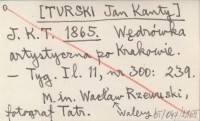 [TURSKI Jan Kanty]
J. K. T. 1865. Wędrówka
artystyczna po Krakowie.
— Tyg. Il. 11, nr 300: 239.
M. in. Wacław Rzewuski,
fotograf Tatr.
Walery